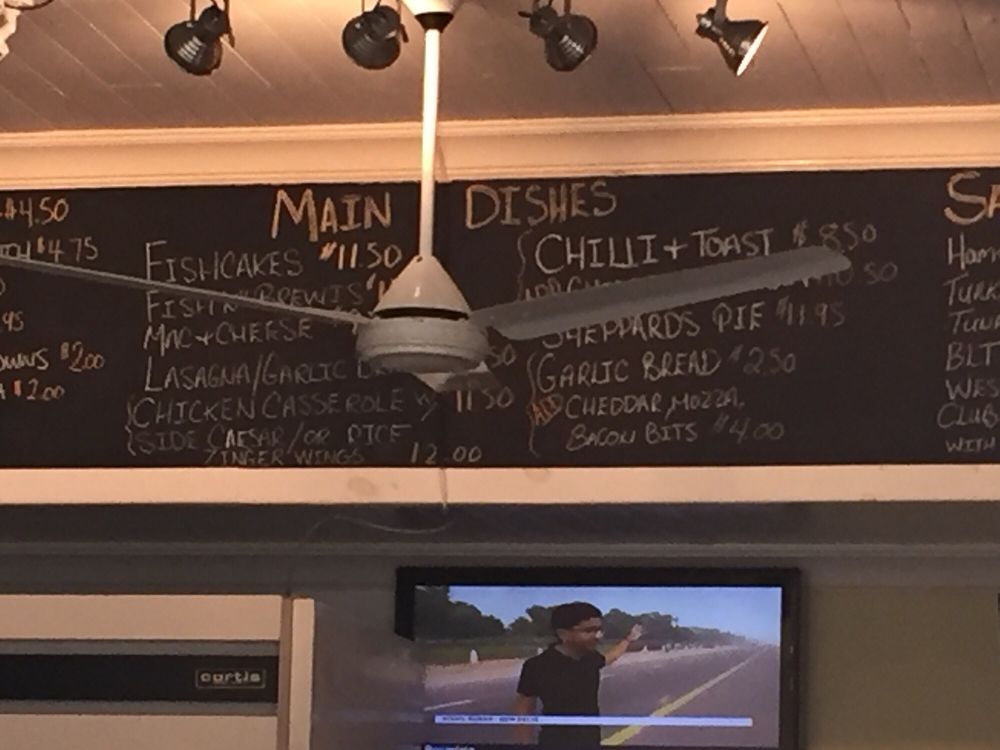 $4.50
$4.75
.95
$2.00
$2.00
MAIN DISHES
FISHCAKES $11.50
FISH N BREWIS
MAC + CHEESE
LASAGNA/GARLIC
CHICKEN CASSEROLE W/ 11.50
SIDE CAESAR/OR RICE
ZINGER WINGS 12.00
CHILLI + TOAST $8.50
ADD
SHEPPARDS PIE $11.95
GARLIC BREAD $2.50
ADD CHEDDAR, MOZZA,
BACON BITS $4.00
SA
HAM
TURK
TUN
BLT
WES
CLUB
WITH
curtis